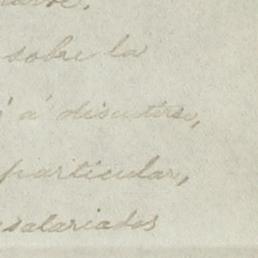 sobre la
á discutirse,
particular,
asalariados